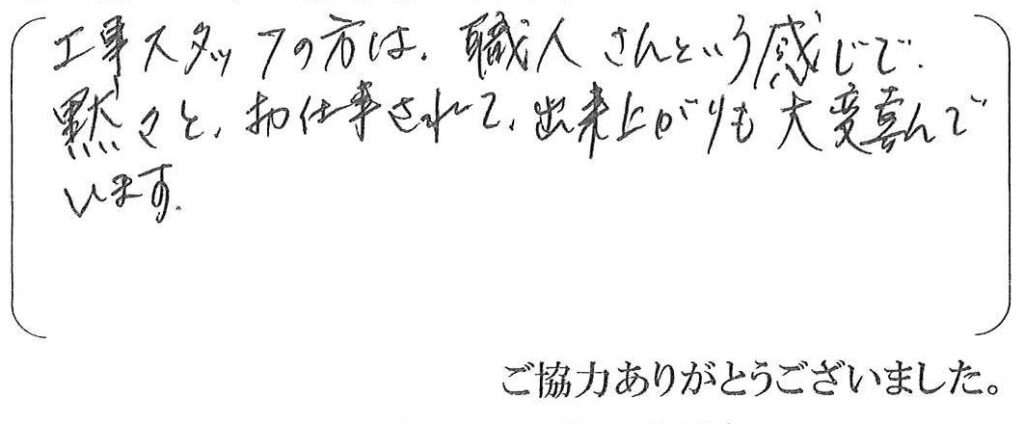 工事スタッフの方は、職人さんという感じで、
黙々と、お仕事されて、出来上がりも大変喜んで
います。
ご協力ありがとうございました。